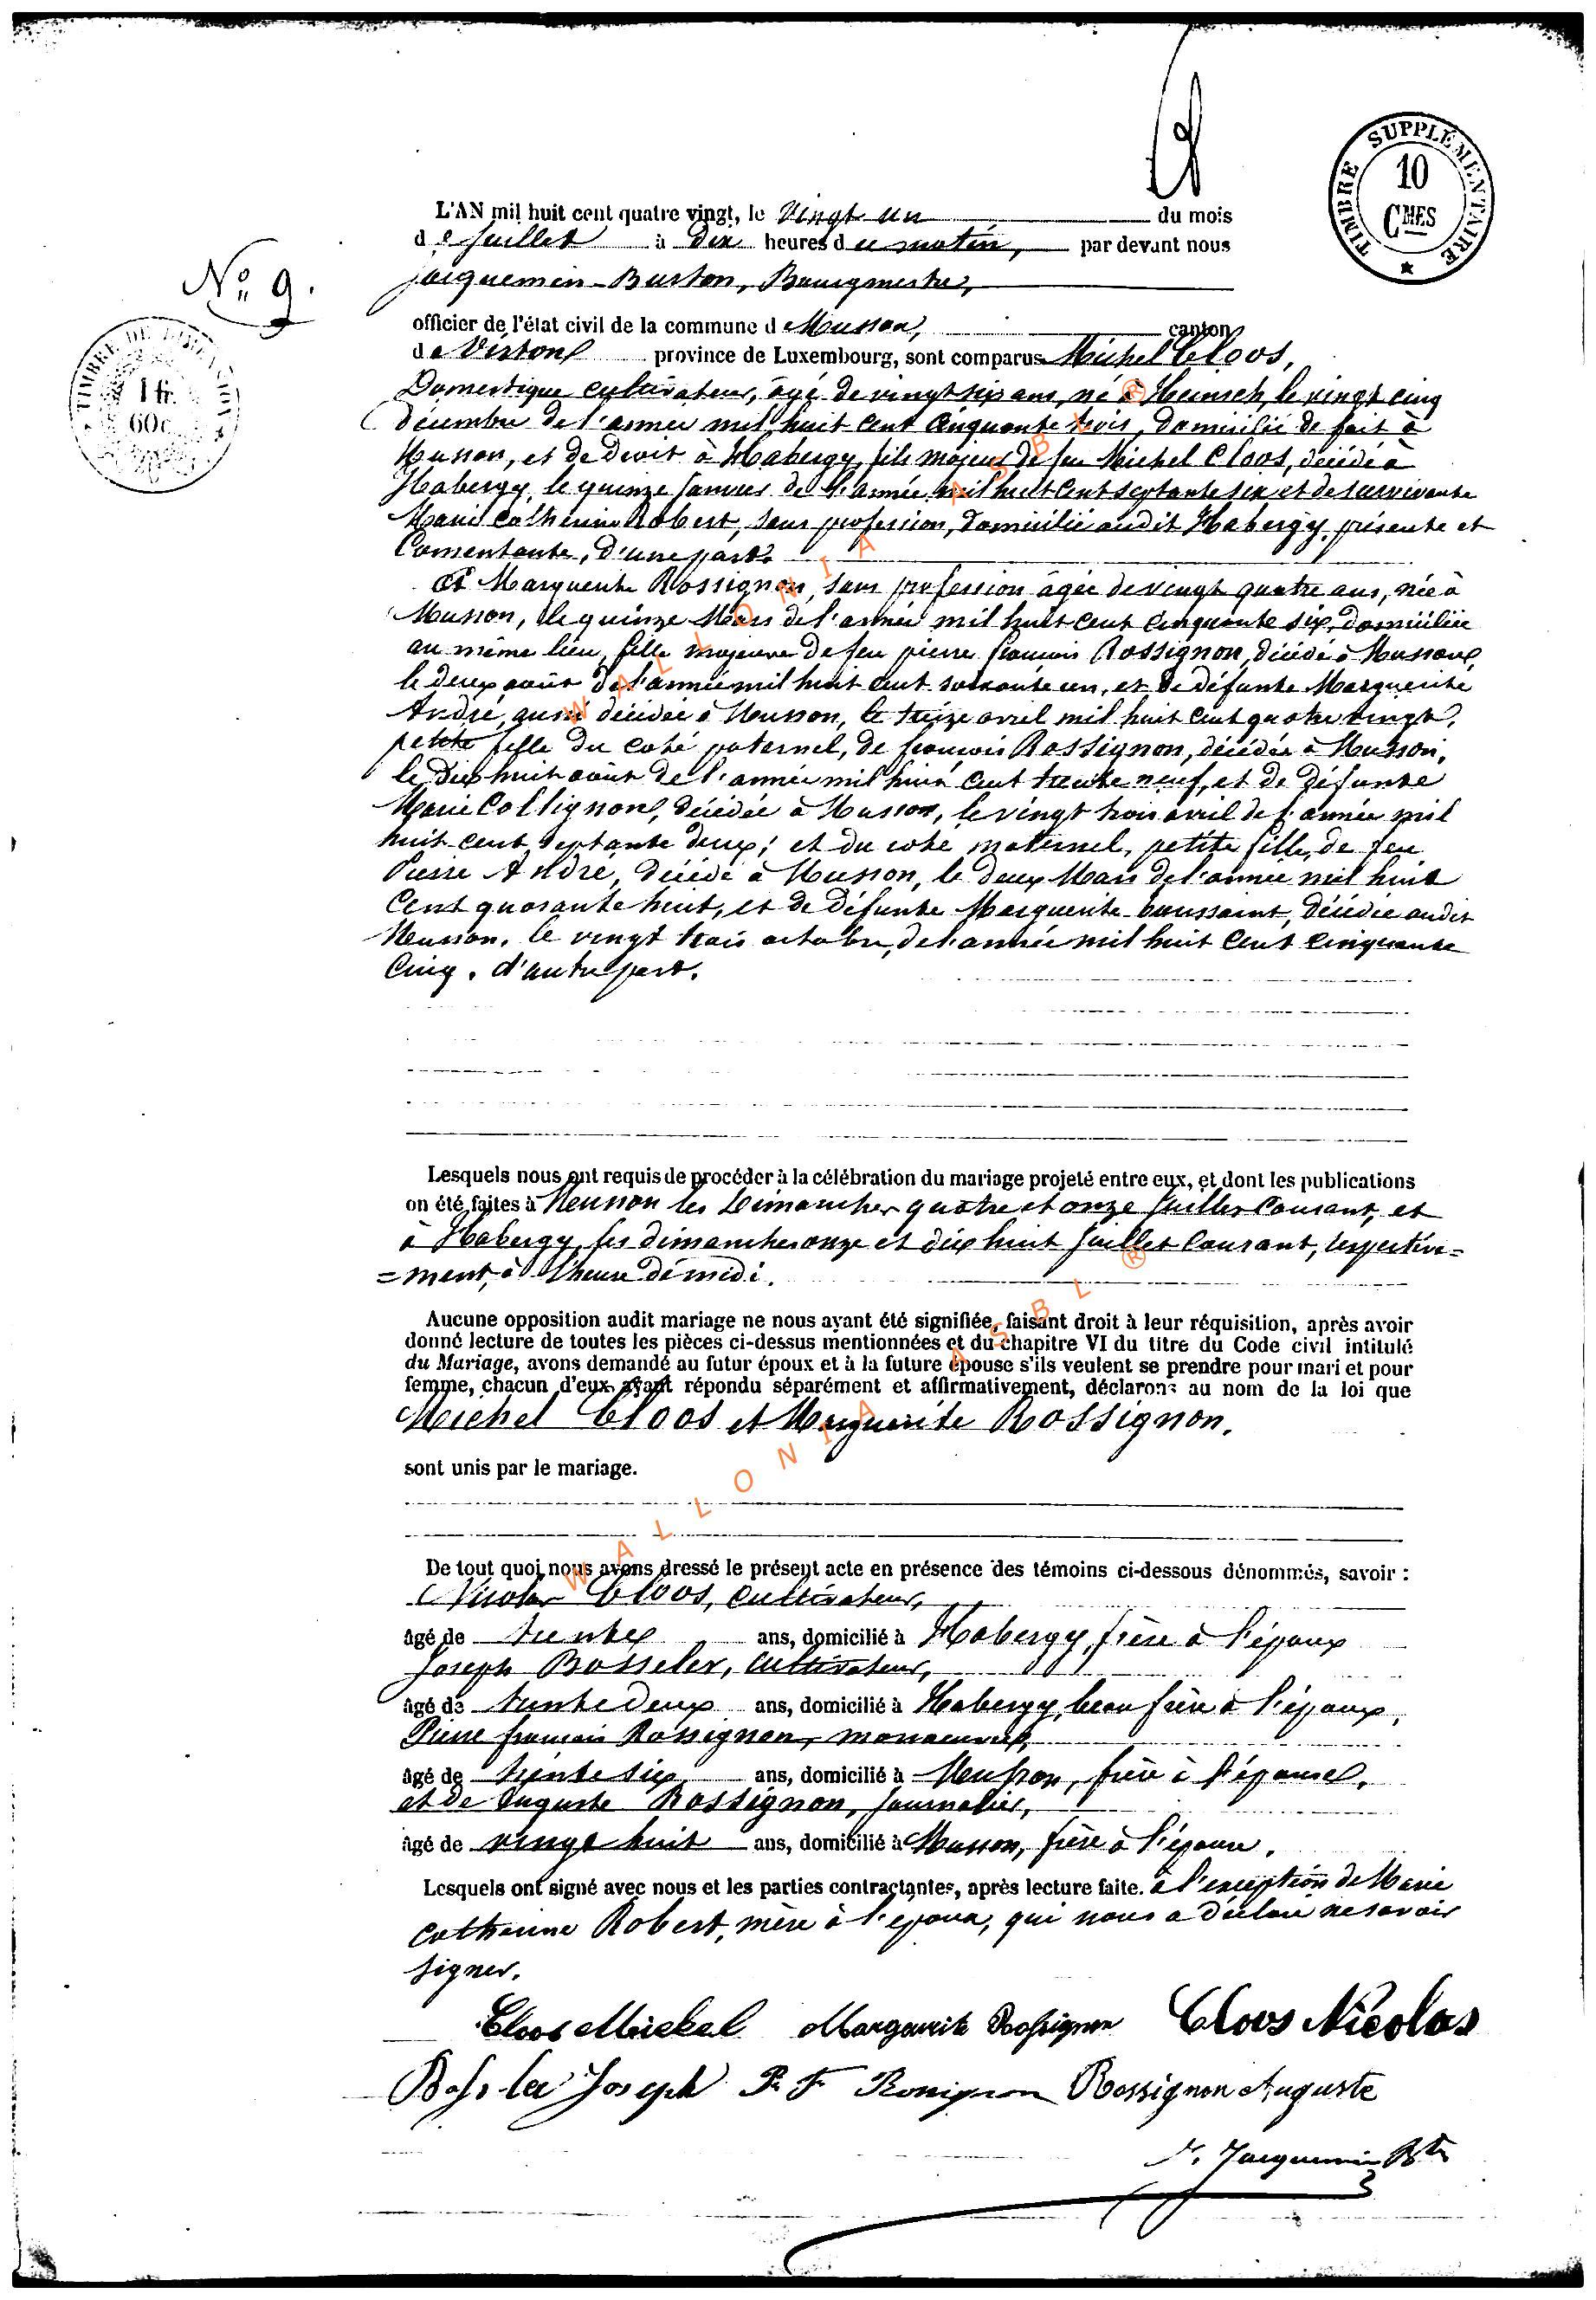 TIMBRE SUPPLÉMENTAIRE
10
CMES
L'AN mil huit cent quatre vingt, le Vingt un du mois
de Juillet à dix heures du matin, par devant nous
Jacquemin-Burton, Bourgmestre,
No 9.
officier de l'état civil de la commune de Musson, canton
de Virton province de Luxembourg, sont comparus Michel Cloos,
TIMBRE DE DIMENSION
1 fr.
60 c
Domestique cultivateur, âgé de vingt six ans, né à Heinsch, le vingt cinq
décembre de l'année mil huit cent cinquante trois, domicilié de fait à
Musson, et de Droit à Habergy, fils majeur de feu Michel Cloos, décédé à
Habergy, le quinze Janvier de l'année mil huit cent septante six et de survivante
Marie Catherine Robert, sans profession, domiciliée audit Habergy, présente et
Consentante, d'une part.
Et Marguerite Rossignon, sans profession âgée de vingt quatre ans, née à
Musson, le quinze Mars de l'année mil huit cent cinquante six, domiciliée
au même lieu, fille majeure de feu pierre françois Rossignon, décédé à Musson,
le deux août de l'année mil huit cent soixante un, et de défunte Marguerite
André, aussi décédée à Musson, le treize avril mil huit cent quatre vingt,
petite fille du coté paternel, de françois Rossignon, décédé à Musson,
le Dix huit août de l'année mil huit cent trente neuf, et de défunte
Marie Collignon, décédée à Musson, le vingt trois avril de l'année mil
huit cent septante deux; et du coté maternel, petite fille, de feu
Pierre André, décédé à Musson, le deux Mars de l'année mil huit
Cent quarante huit, et de défunte Marguerite, décédée audit
Musson, le vingt trois octobre, de l'année mil huit cent cinquante
Cinq. d'autre part.
Lesquels nous ont requis de procéder à la célébration du mariage projeté entre eux, et dont les publications
on été faites à Musson les Dimanches quatre et onze Juillet Courant, et
à Habergy, les dimanches onze et dix huit Juillet Courant, respective=
=ment, à l'heure de midi.
Aucune opposition audit mariage ne nous ayant été signifiée, faisant droit à leur réquisition, après avoir
donné lecture de toutes les pièces ci-dessus mentionnées et du chapitre VI du titre du Code civil intitulé
du Mariage, avons demandé au futur époux et à la future épouse s'ils veulent se prendre pour mari et pour
femme, chacun d'eux ayant répondu séparément et affirmativement, déclarons au nom de la loi que
Michel Cloos et Marguerite Rossignon.
sont unis par le mariage.
De tout quoi nous avons dressé le présent acte en présence des témoins ci-dessous dénommés, savoir :
Nicolas Cloos, Cultivateur,
âgé de trente ans, domicilié à Habergy, frère à l'époux
Joseph Bosseler, cultivateur,
âgé de trente deux ans, domicilié à Habergy, beau frère à l'époux,
Pierre françois Rossignon, manoeuvre,
âgé de trente six ans, domicilié à Musson, frère à l'épouse,
et de Auguste Rossignon, Journalier,
âgé de vingt huit ans, domicilié à Musson, frère à l'épouse.
Lesquels ont signé avec nous et les parties contractantes, après lecture faite. à l'exception de Marie
Catherine Robert, mère à l'époux, qui nous a déclaré ne savoir
signer.
Cloos Michel Marguerite Rossignon Cloos Nicolas
Bossler Joseph P. F Rossignon Rossignon Auguste
Jacquemin Btn
WALLONIA ASBL ®
WALLONIA ASBL ®